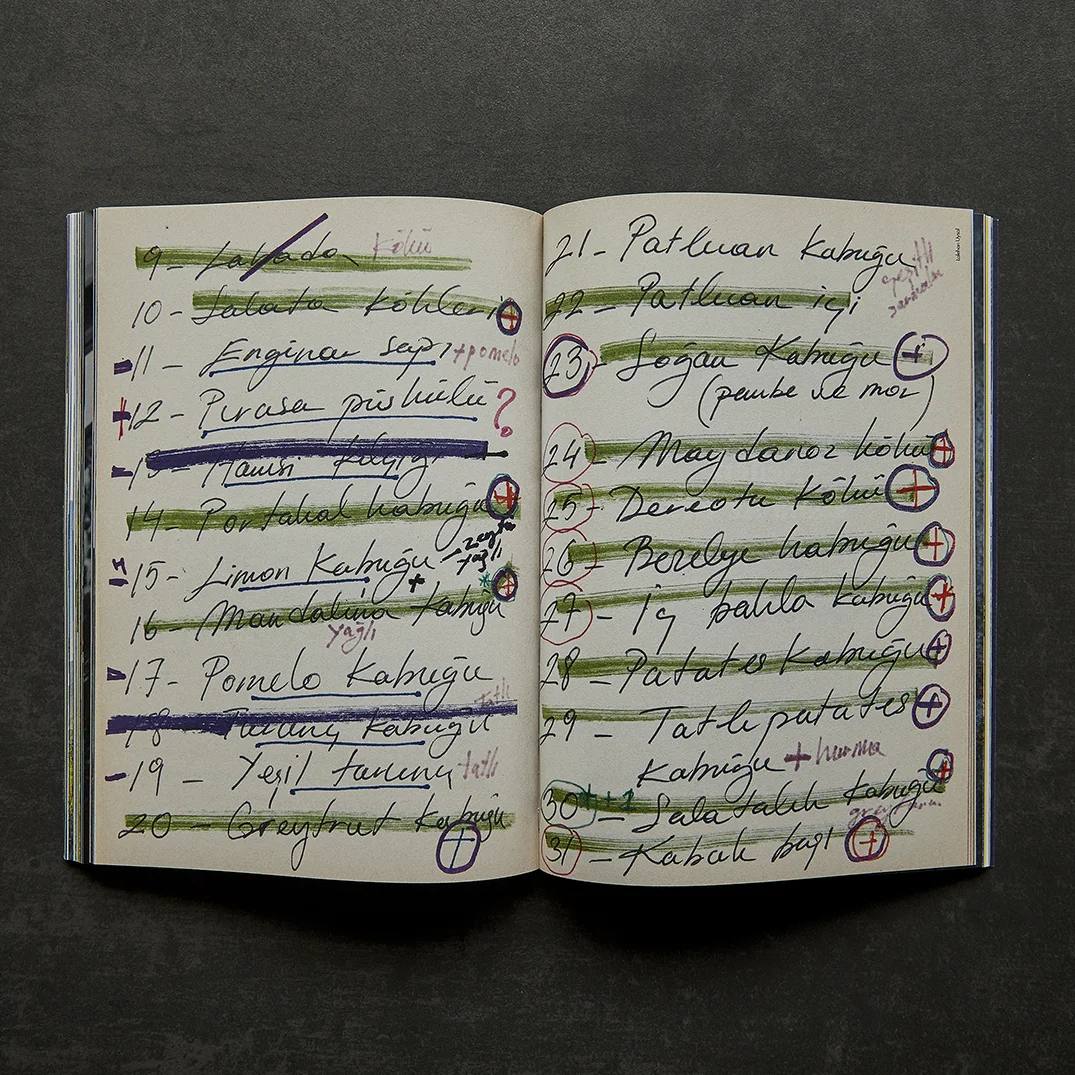 9- Labada kökü
10- Salata kökleri
11- Enginar sapı +pomelo
12- Pırasa püskülü ?
Hamsi kılçığı
14- Portakal kabuğu
15- Limon Kabuğu
yağlı
16- Mandalina kabuğu
yağlı
17- Pomelo Kabuğu
tatlı
18- Turunç Kabuğu
19- Yeşil turunç tatlı
20- Greyfrut Kabuğu
21- Patlıcan Kabuğu
22- Patlıcan içi
23- Soğan Kabuğu
(pembe ve mor)
24- Maydanoz kökü
25- Dereotu Kökü
26- Bezelye kabuğu
27- İç bakla kabuğu
28- Patates Kabuğu
29- Tatlı patates
Kabuğu + hurma
30- Salatalık Kabuğu
31- Kabak başı